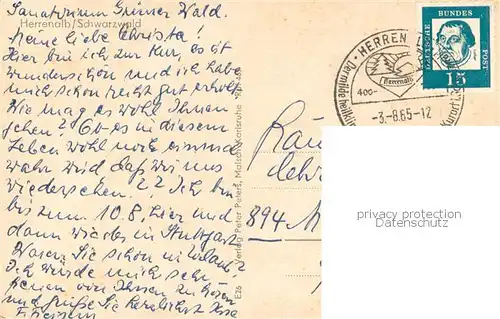 Sanatorium Grüner Wald.
Herrenalb/Schwarzwald
Meine liebe Christa!
Hier bin ich zur Kur, es ist
wunderschön und ich habe
mich schon recht gut erholt.
Wie mag es wohl Ihnen
gehen? Ob es in diesem
Leben wohl noch einmal
wahr wird daß wir uns
wiedersehen?? Ich bin
bis zum 10.8. hier und
dann wieder in Stuttgart
Waren Sie schon in Urlaub?
Ich würde mich sehr
freuen von Ihnen zu hören
und grüße Sie herzlichst Ihre
Verlag Peter Peters, Malsch/Karlsruhe
E26
HERREN
Herrenalb
400-
-3.-8.65-12
DEUTSCHE
BUNDES
POST
15
894
privacy protection
Datenschutz